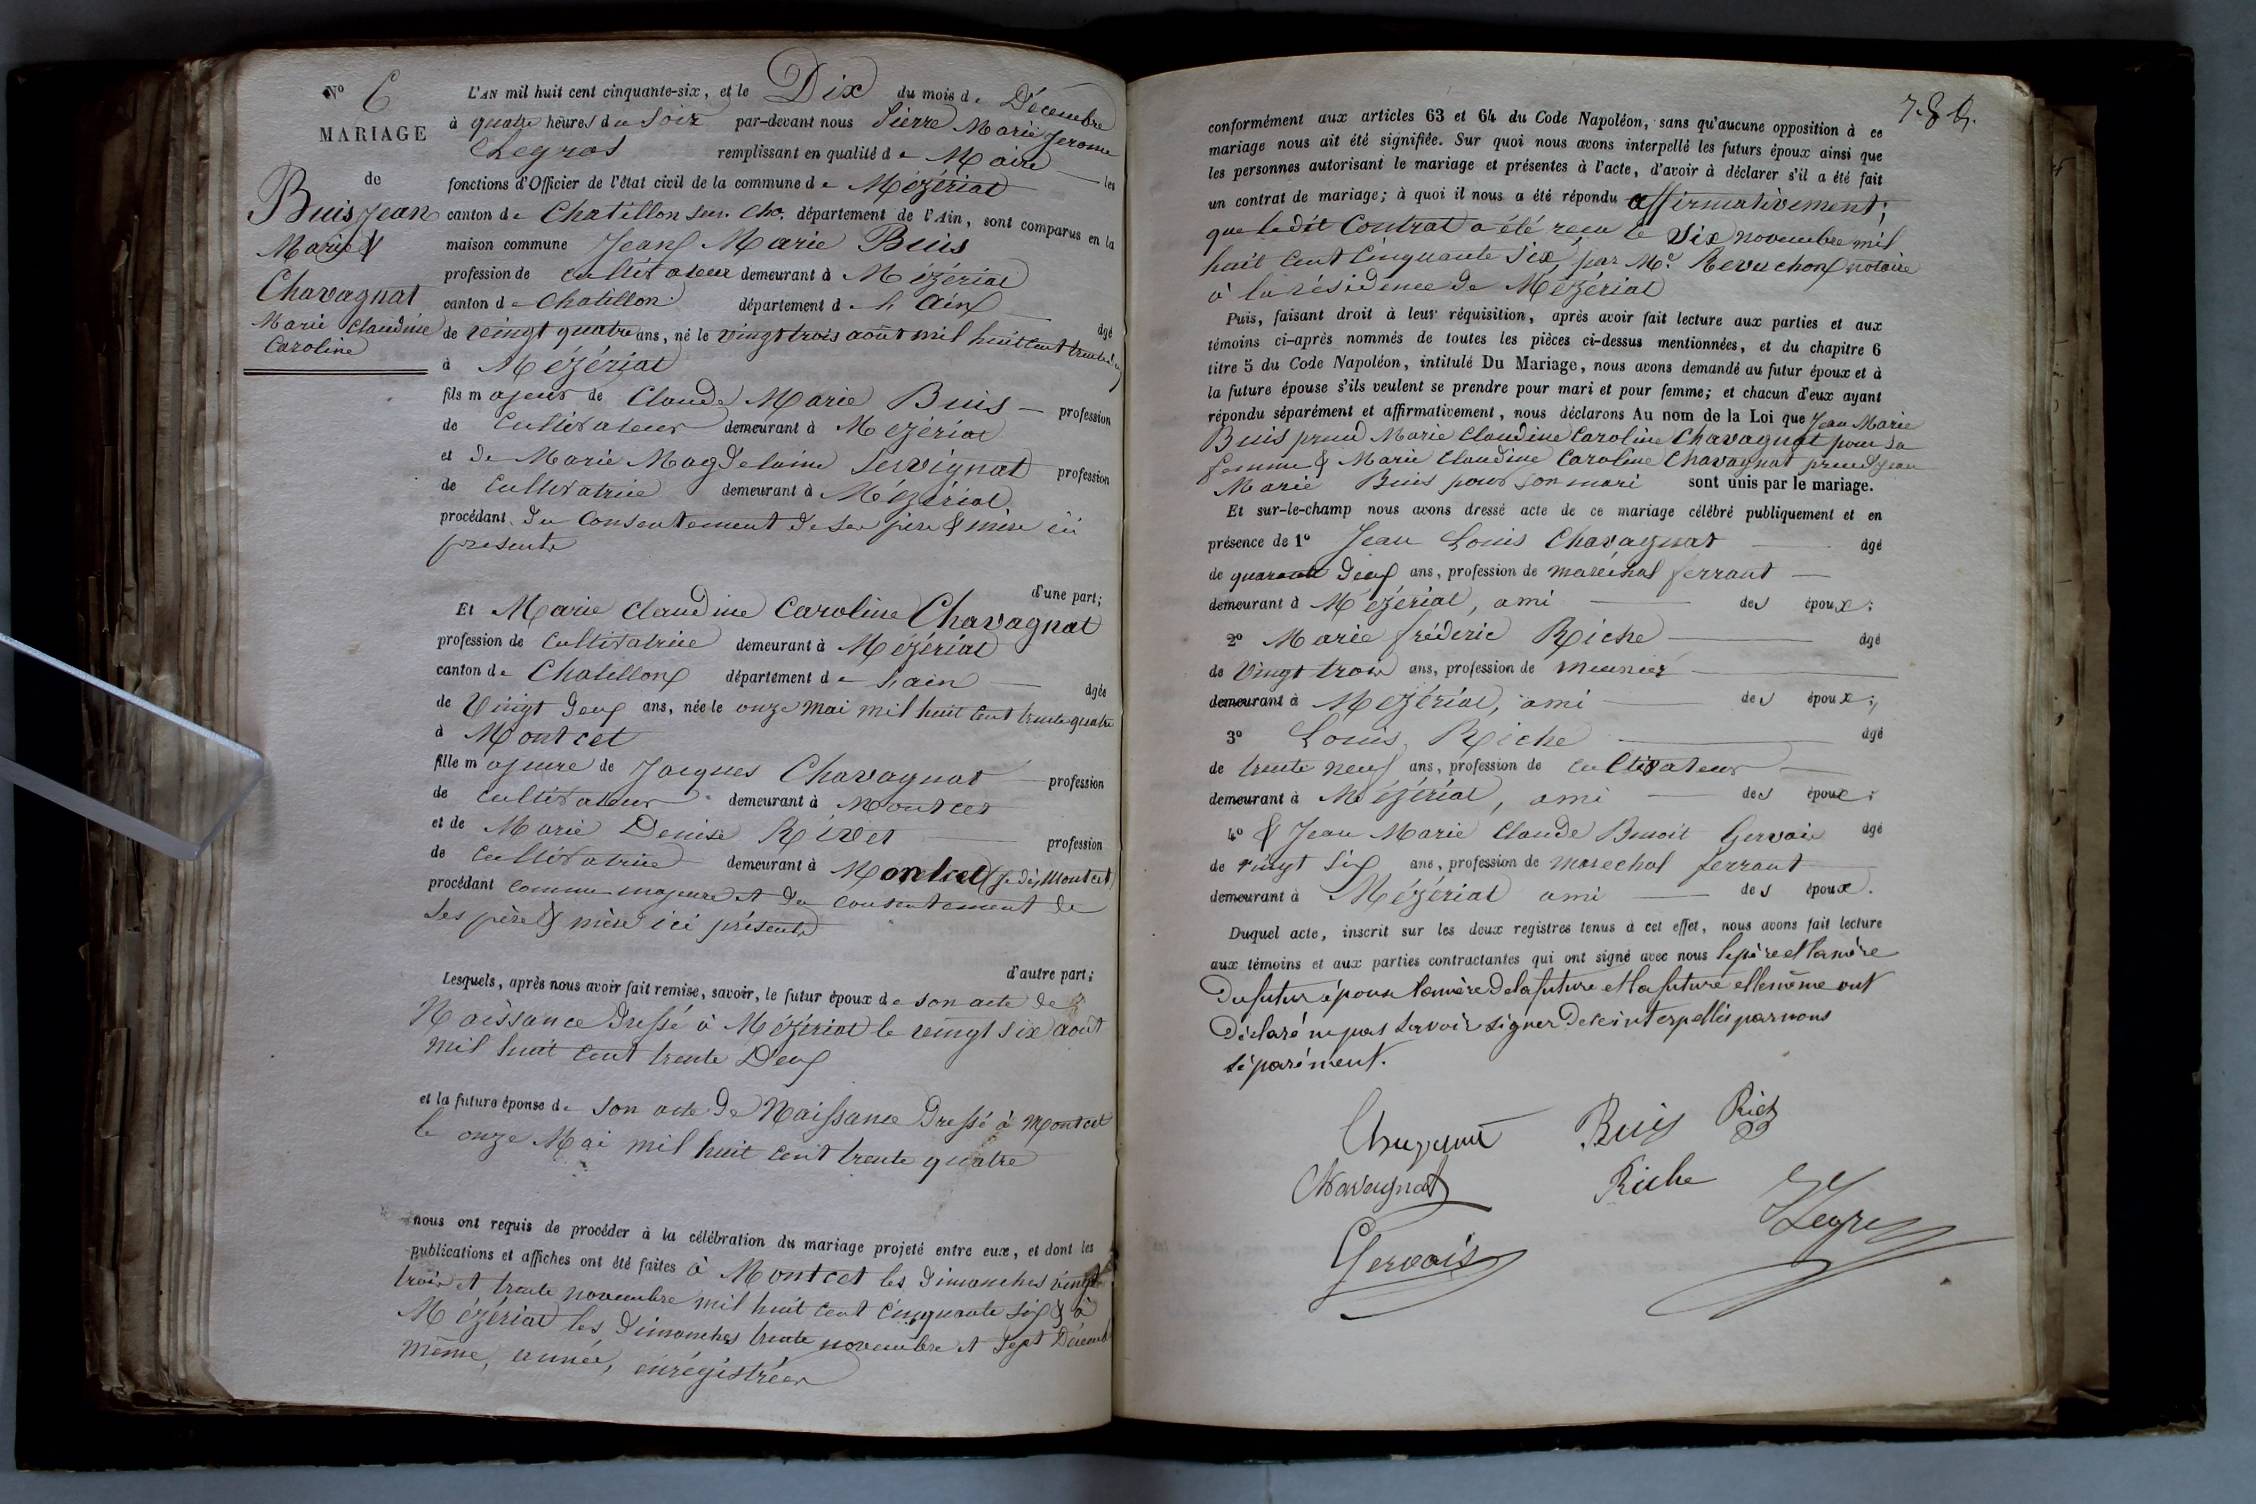 N° 6
MARIAGE
de
Buis Jean
Marie &
Chavagnat
Marie Claudine
Caroline
L'AN mil huit cent cinquante-six, et le Dix du mois de Décembre
à quatre heures du Soir par-devant nous Pierre Marie Jerome
Legros remplissant en qualité de Maire les
fonctions d'Officier de l'état civil de la commune de Mézériat
canton de Chatillon sur Cha. département de l'Ain, sont comparus en la
maison commune Jean Marie Buis
profession de cultivateur demeurant à Mézériat
canton de Chatillon département de l'Ain âgé
de vingt quatre ans, né le vingt trois août mil huit cent trente
à Mézériat
fils majeur de Claude Marie Buis profession
de Cultivateur demeurant à Mézériat
et de Marie Magdelaine Servignat profession
de Cultivatrice demeurant à Mézériat
procédant du Consentement de ses père & mère ici
presents
d'une part;
Et Marie Claudine Caroline Chavagnat
profession de Cultivatrice demeurant à Mézériat
canton de Chatillon département de l'ain âgée
de Vingt deux ans, née le onze mai mil huit cent trente quatre
à Montcet
fille majeure de Jacques Chavagnat profession
de cultivateur demeurant à Montcet
et de Marie Denise Rivet profession
de cultivatrice demeurant à Montcet (je dis Montcet)
procédant comme majeure et du consentement de
ses père & mère ici présents
d'autre part;
Lesquels, après nous avoir fait remise, savoir, le futur époux de son acte de
Naissance dressé à Mézériat le vingt six août
mil huit cent trente Deux
et la future épouse de son acte de Naissance dressé à Montcet
le onze Mai mil huit cent trente quatre
nous ont requis de procéder à la célébration du mariage projeté entre eux, et dont les
publications et affiches ont été faites à Montcet les dimanches vingt
trois et trente novembre mil huit cent cinquante six & à
Mézériat les dimanches trente novembre et sept Décemb
même année, enrégistrées
789.
conformément aux articles 63 et 64 du Code Napoléon, sans qu'aucune opposition à ce
mariage nous ait été signifiée. Sur quoi nous avons interpellé les futurs époux ainsi que
les personnes autorisant le mariage et présentes à l'acte, d'avoir à déclarer s'il a été fait
un contrat de mariage; à quoi il nous a été répondu affirmativement;
que ledit Contrat a été reçu le Six novembre mil
huit cent Cinquante Six, par Me. Revuchon notaire
à la résidence de Mézériat
Puis, faisant droit à leur réquisition, après avoir fait lecture aux parties et aux
témoins ci-après nommés de toutes les pièces ci-dessus mentionnées, et du chapitre 6
titre 5 du Code Napoléon, intitulé Du Mariage, nous avons demandé au futur époux et à
la future épouse s'ils veulent se prendre pour mari et pour femme; et chacun d'eux ayant
répondu séparément et affirmativement, nous déclarons Au nom de la Loi que Jean Marie
Buis prend Marie Claudine Caroline Chavagnat pour sa
femme & Marie Claudine Caroline Chavagnat prend Jean
Marie Buis pour son mari sont unis par le mariage.
Et sur-le-champ nous avons dressé acte de ce mariage célébré publiquement et en
présence de 1° Jean Louis Chavagnat âgé
de quarante deux ans, profession de maréchal ferrant
demeurant à Mézériat, ami des époux;
2° Marie fréderic Riche âgé
de Vingt trois ans, profession de meunier
demeurant à Mézériat, ami des époux;
3° Louis Riche âgé
de trente neuf ans, profession de cultivateur
demeurant à Mézériat, ami des époux;
4° & Jean Marie Claude Benoit Gervais âgé
de vingt six ans, profession de marechal ferrant
demeurant à Mézériat ami des époux.
Duquel acte, inscrit sur les deux registres tenus à cet effet, nous avons fait lecture
aux témoins et aux parties contractantes qui ont signé avec nous le père et la mère
du futur époux la mère de la future et la future elle même ont
déclaré ne pas savoir signer de ce interpellés par nous
séparément.
Buis
Chavagnat
Riche
Gervais
Legros